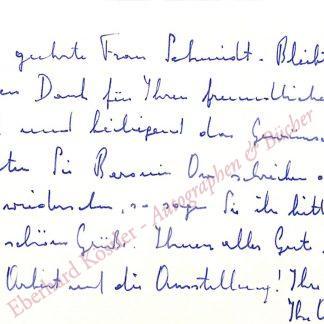 geehrte Frau Schmidt. Bleib
en Dank für Ihren freundliche
und beiliegend das Gewünsc
ten Sie Baronin Orn schreiben o
wiedersehen, so sagen Sie ihr bitt
schöne Grüße. Ihnen alles Gute,
Arbeit und die Ausstellung! Ihre
Ihre
Eberhard Köstler - Autographen & Bücher